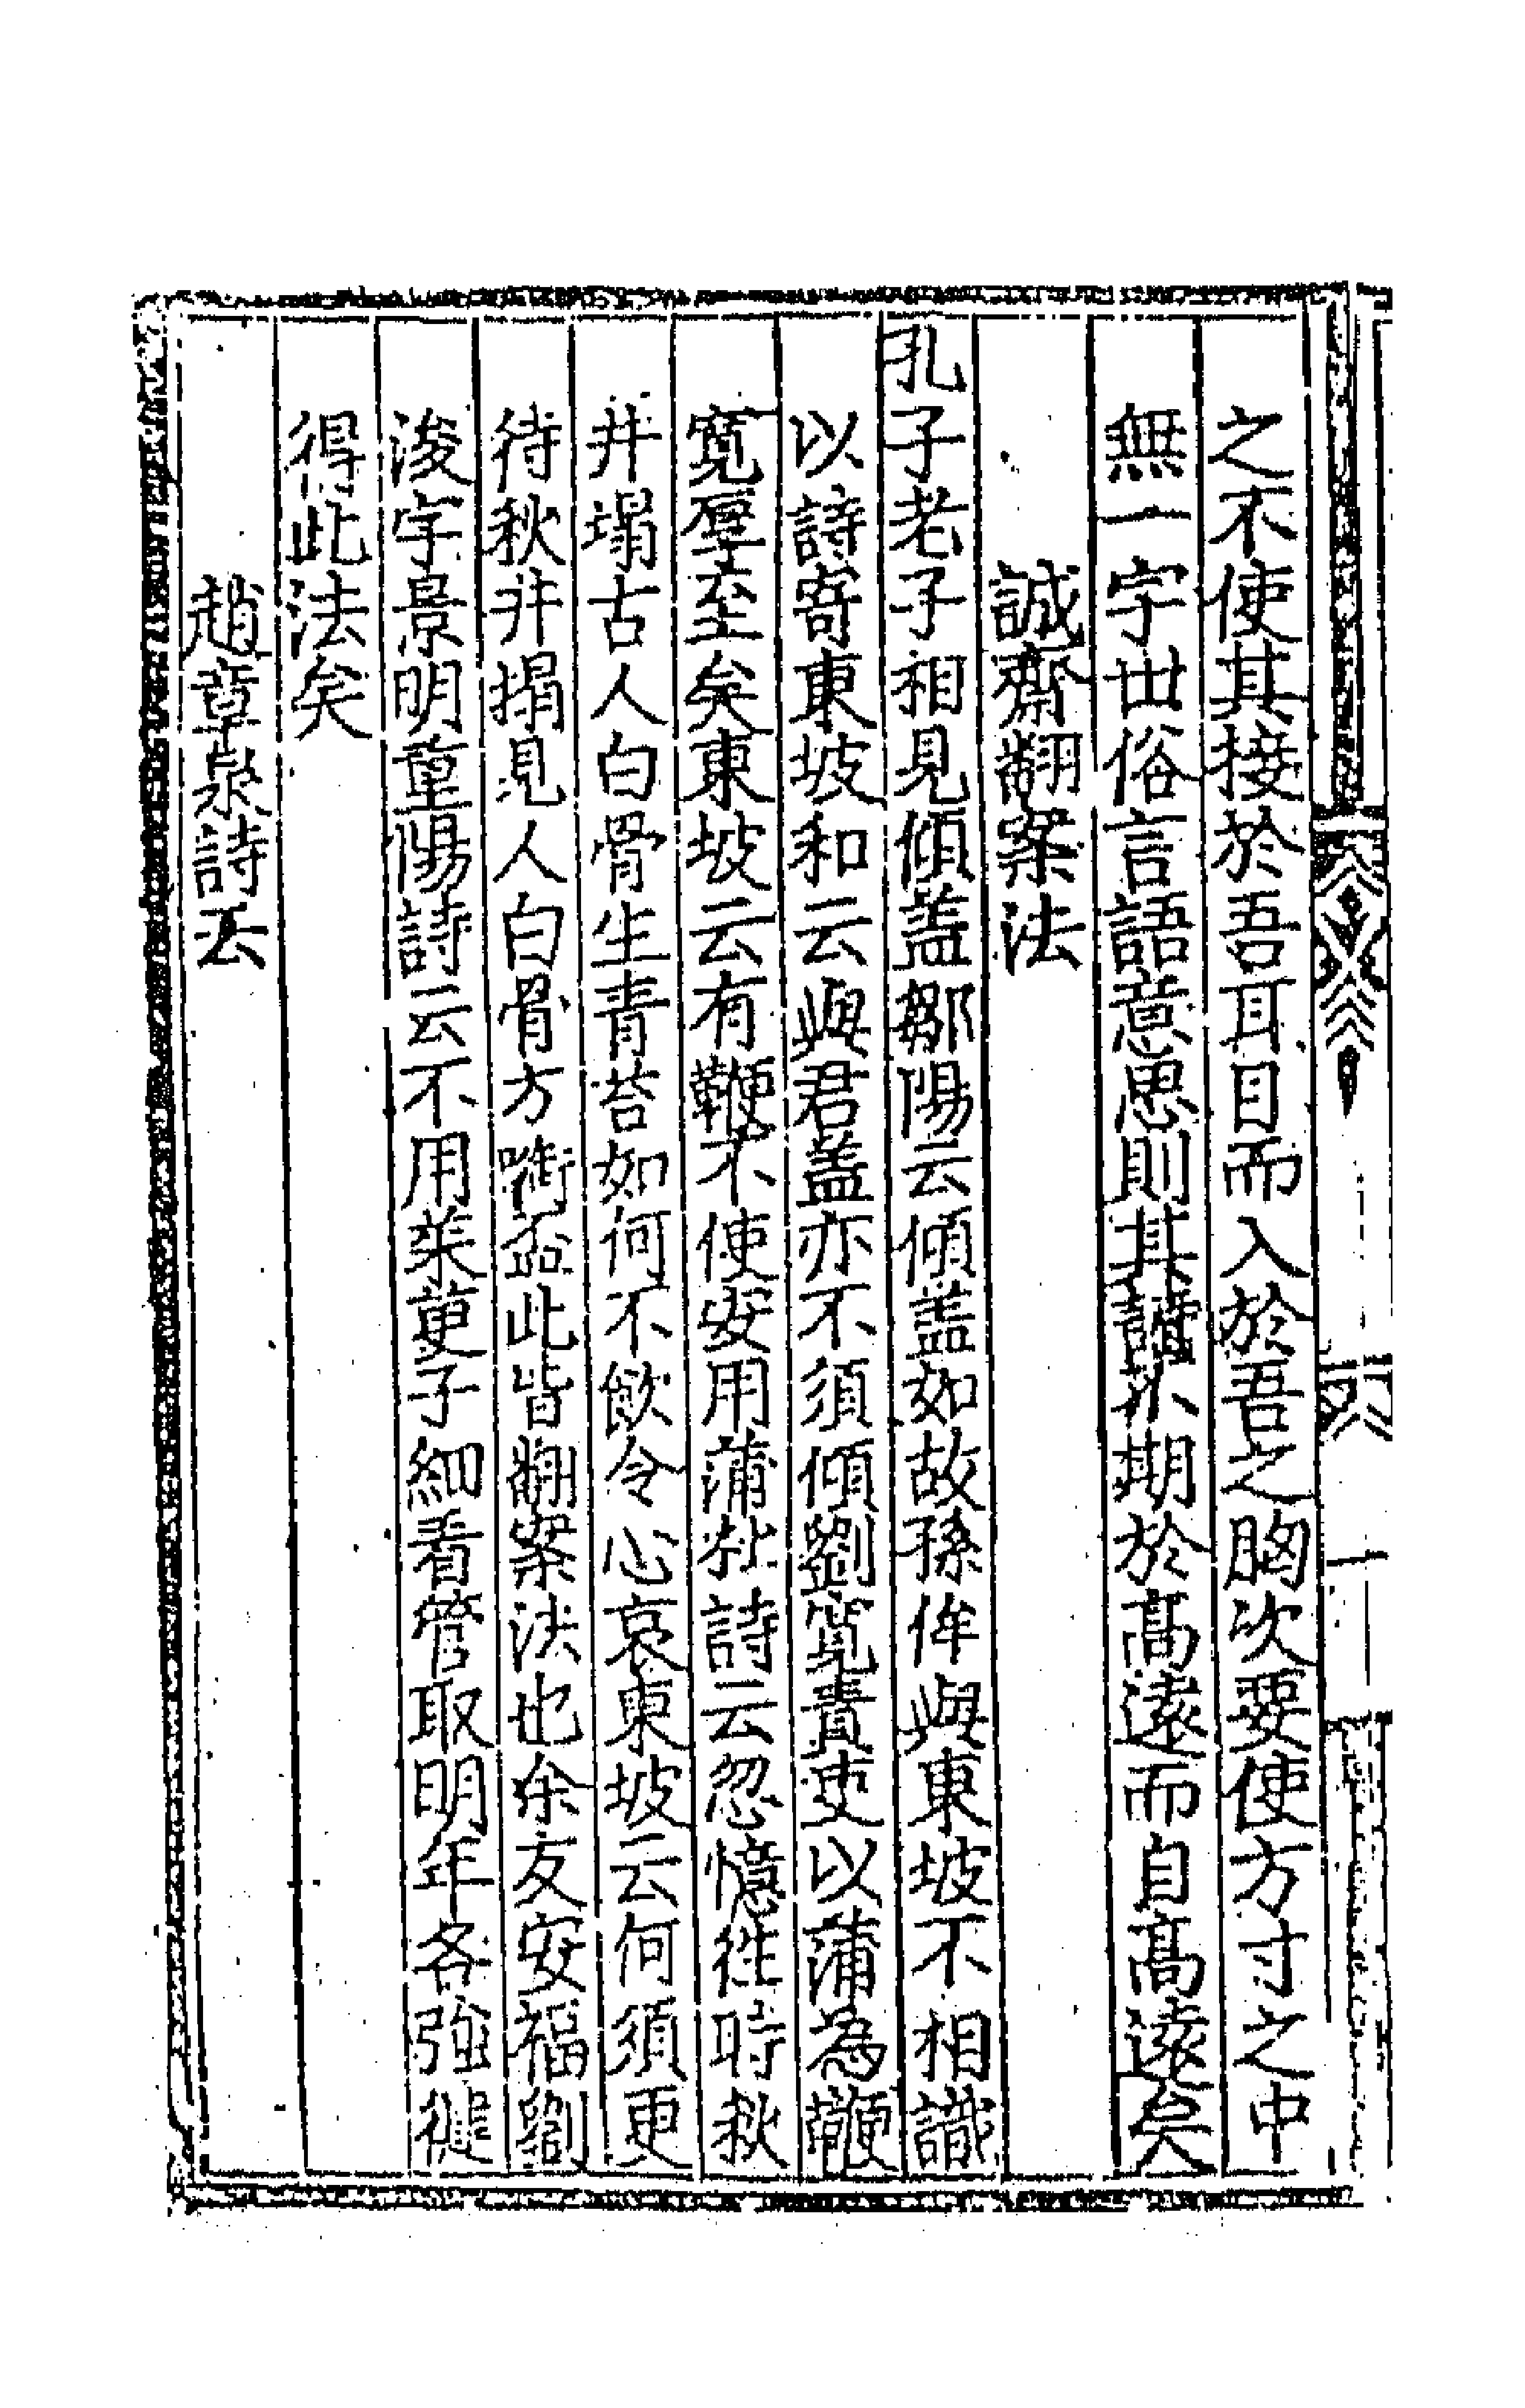 之不使其接於吾耳目而入於吾之胸次要使方寸之中
無一字世俗言語意思則其詩不期於髙逺而自髙逺矣
誠齋翻案法
孔子老子相見傾盖鄒陽云傾盖如故孫侔與東坡不相識
以詩寄東坡和云與君盖亦不須傾劉寛責吏以蒲為鞭
寛厚至矣東坡云有鞭不使安用蒲杜詩云忽憶往時秋
井塌古人白骨生青苔如何不飲令心哀東坡云何須更
待秋井塌見人白骨方㘅盃此皆翻案法也余友安福劉
浚字景明重陽詩云不用茱萸子細看管取明年各強健
得此法矣
趙章泉詩法